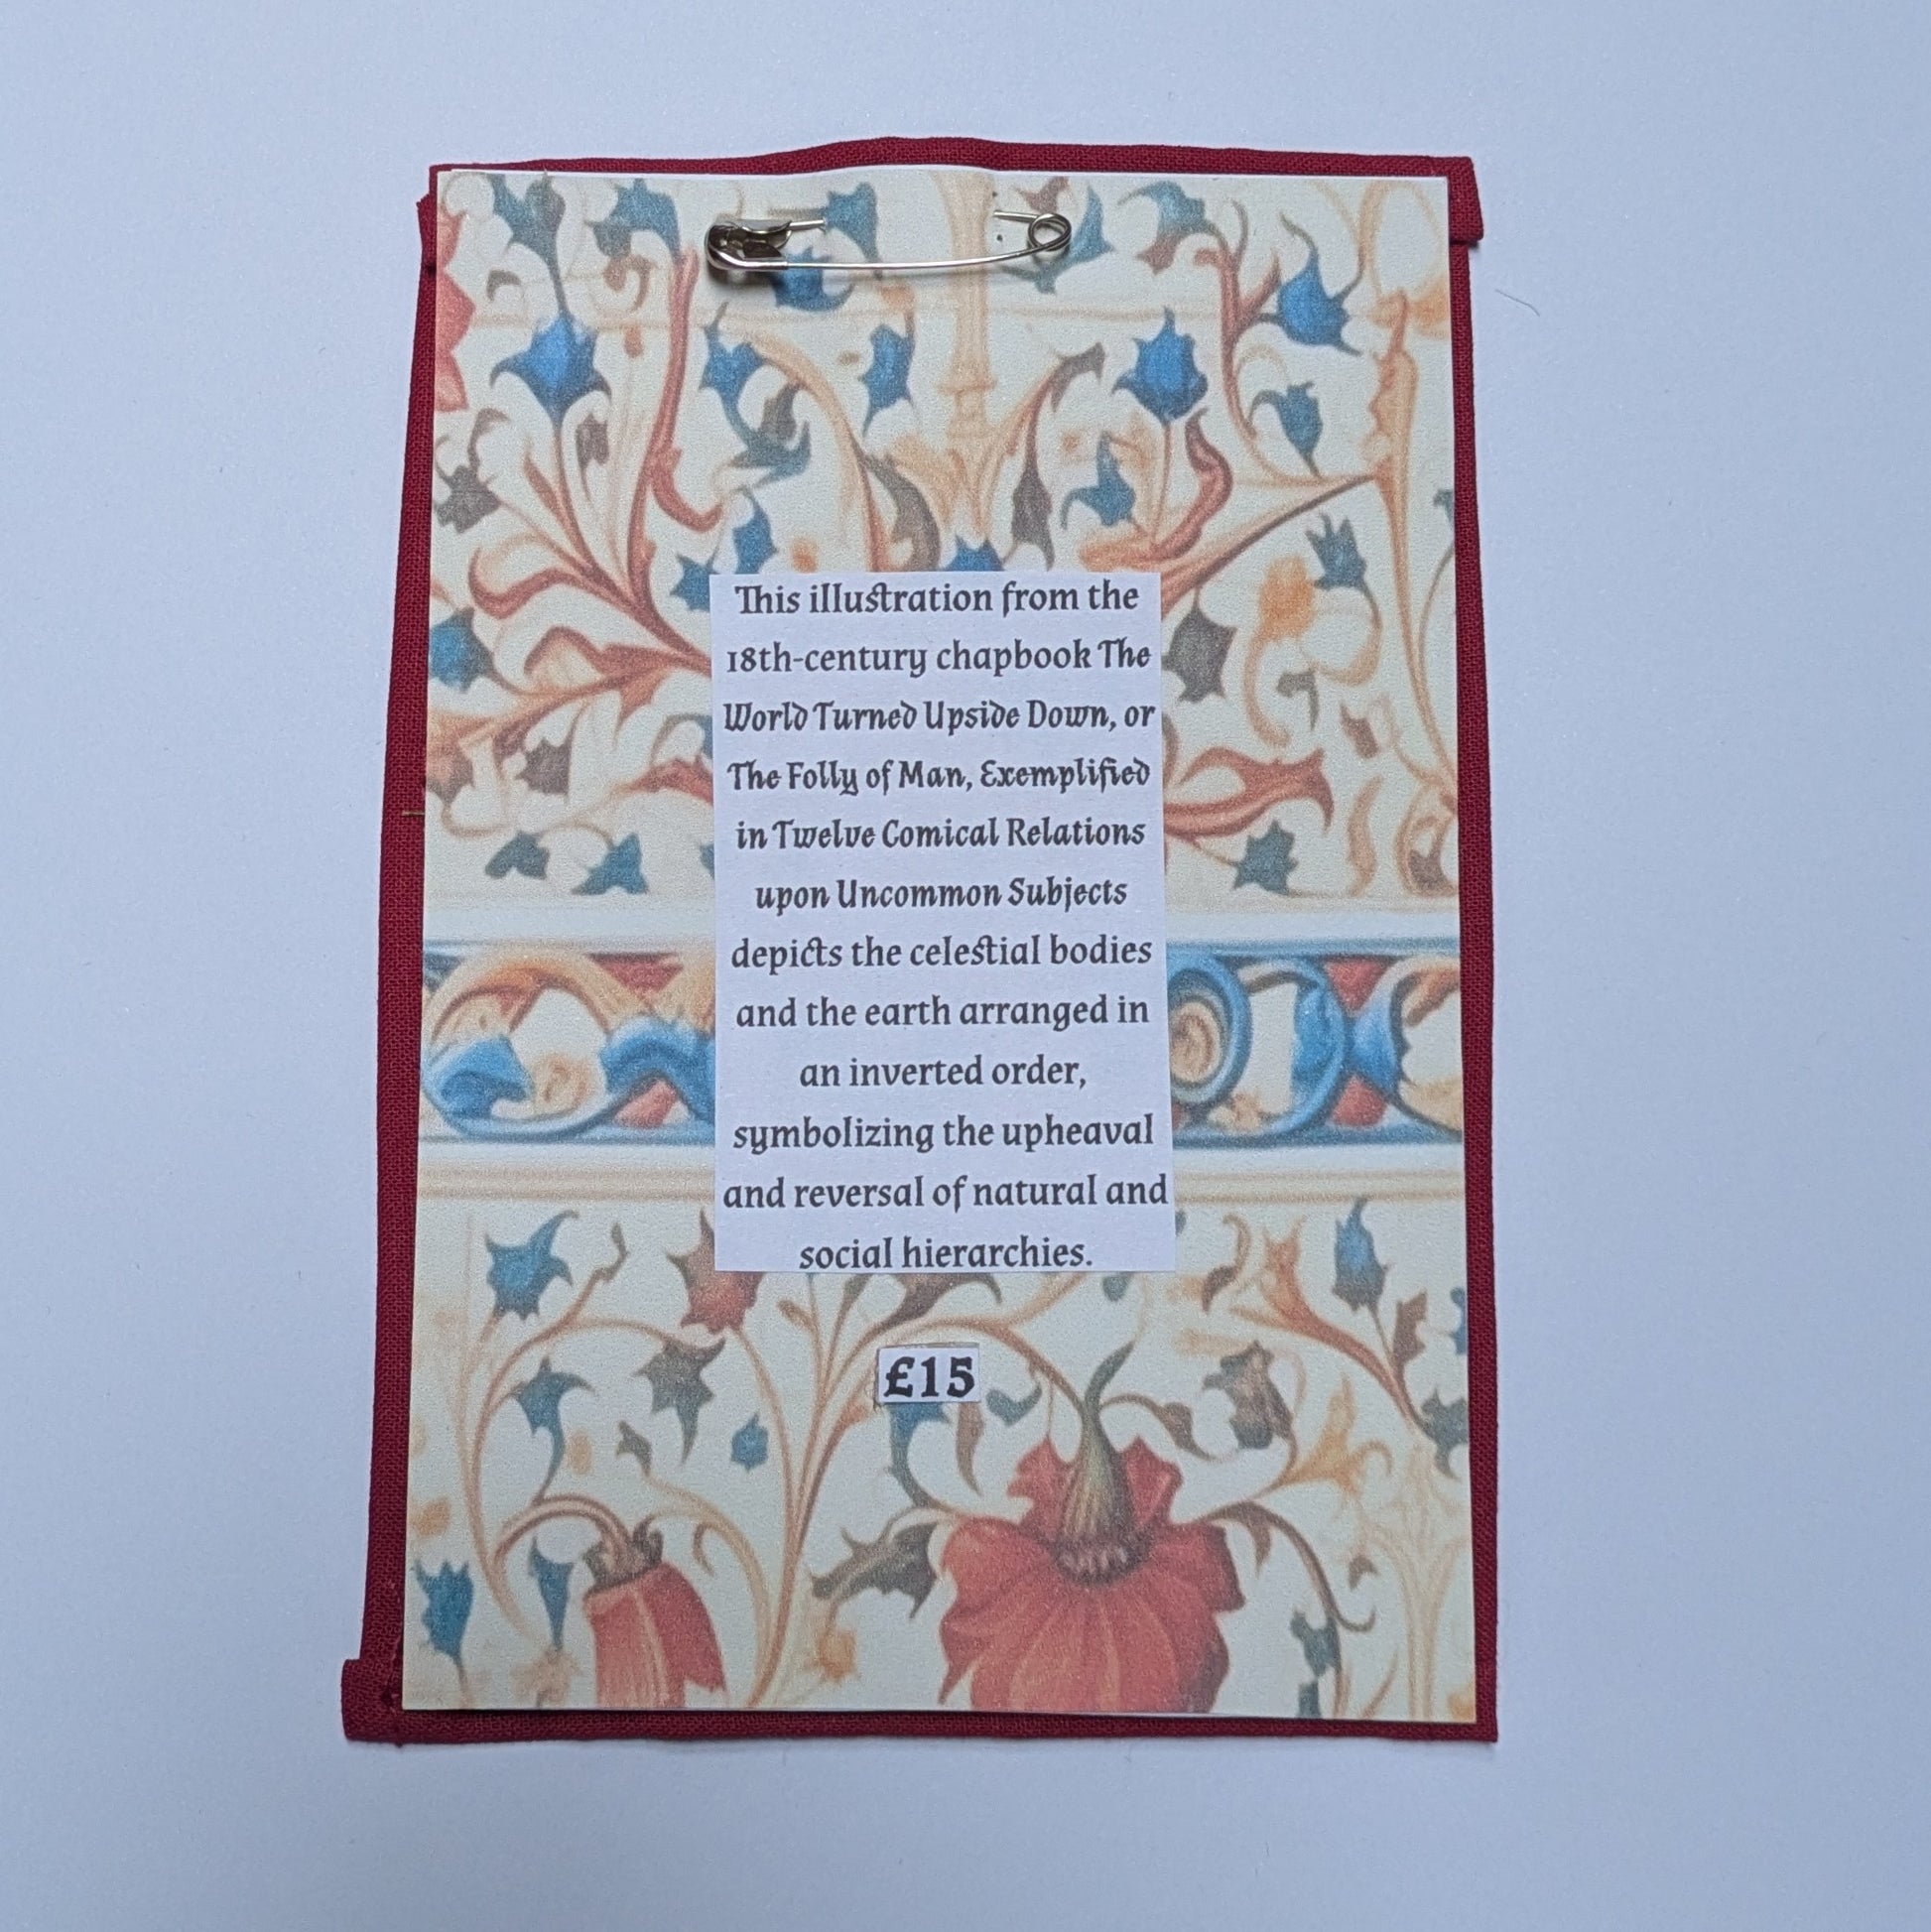 This illustration from the
18th-century chapbook The
World Turned Upside Down, or
The Folly of Man, Exemplified
in Twelve Comical Relations
upon Uncommon Subjects
depicts the celestial bodies
and the earth arranged in
an inverted order,
symbolizing the upheaval
and reversal of natural and
social hierarchies.
£15